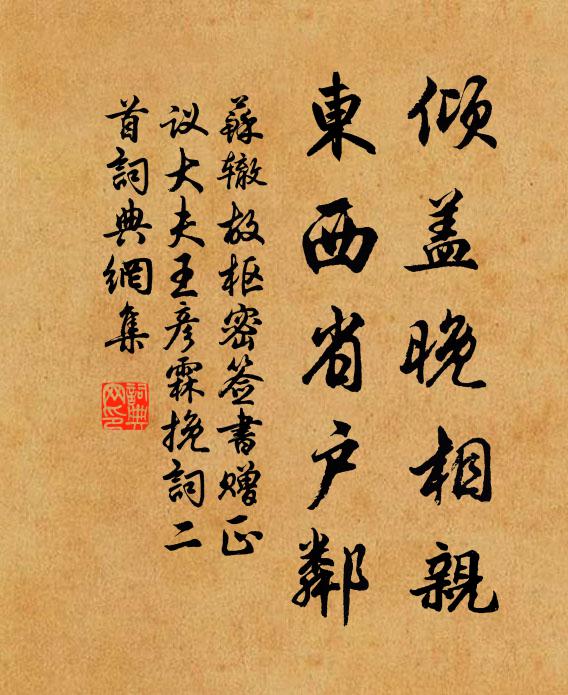 倾盖晚相親
東西省户鄰
蘇辙故枢密签書赠正
议大夫王彦霖挽詞二
首詞典網集
詞典网印